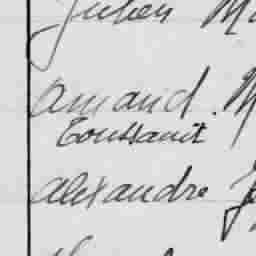 Julien M
Amand. M
Toussaint
Alexandre J